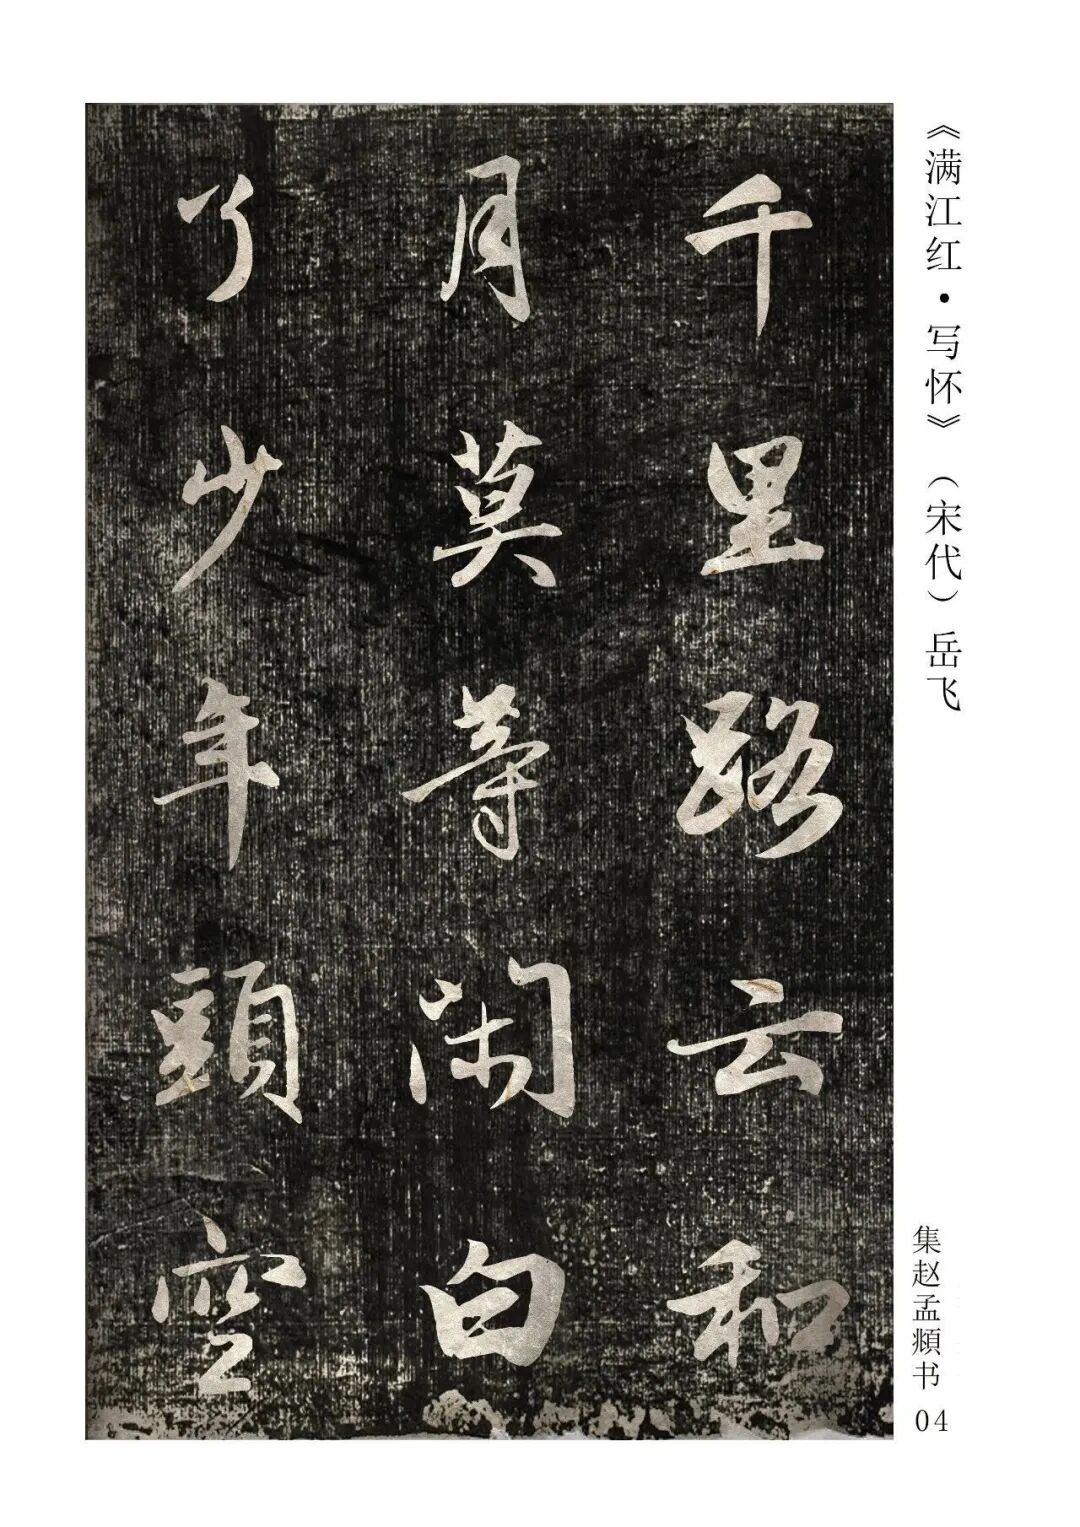 《满江红·写怀》（宋代）岳飞
千里路云和
月莫等闲白
了少年頭空
集赵孟頫书 04